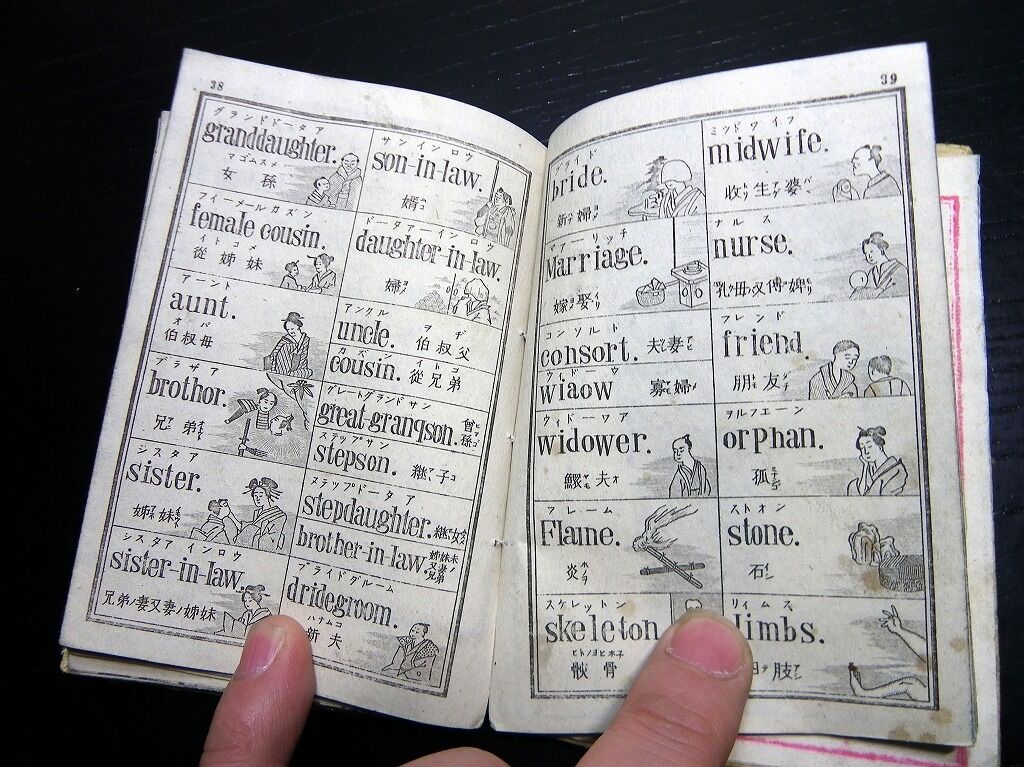 38
グランドドータア
granddaughter.
マゴムスメ
女孫
サンインロウ
son-in-law.
婿
フィーメールカズン
female cousin.
イトコメ
從姊妹
ドータアーインロウ
daughter-in-law.
婦
アーント
aunt.
オバ
伯叔母
アンクル
uncle.
ヲヂ
伯叔父
カズン
cousin.
從兄弟
ブラザア
brothor.
兄弟
グレートグランドサン
great-granqson.
曾孫
ステップサン
stepson.
継子
シスタア
sister.
姉妹
ステップドータア
stepdaughter.
継女
brother-in-law.
シスタアインロウ
sister-in-law.
兄弟ノ妻又妻ノ姉妹
ブライドグルーム
dridegroom.
ハナムコ
新夫
39
ブライド
bride.
新婦
ミッドワイフ
midwife.
收生婆
マアーリッチ
Marriage.
嫁娶
ナルス
nurse.
乳母又傅婢
コンソルト
consort.
夫妻
フレンド
friend.
朋友
ウィドーウ
wiaow
寡婦
ウィドーワア
widower.
鰥夫
ヲルフエーン
orphan.
孤
フレーム
Flaine.
炎
ストオン
stone.
石
スケレットン
skeleton
骸骨
リィムス
limbs.
肢